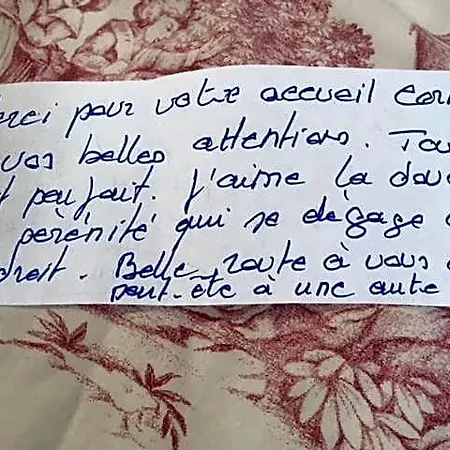 erci pour votre accueil
vos belles attentions.
parfait. J'aime la
pérénité qui se dégage
droit. Belle route à vous
peut-être à une autre